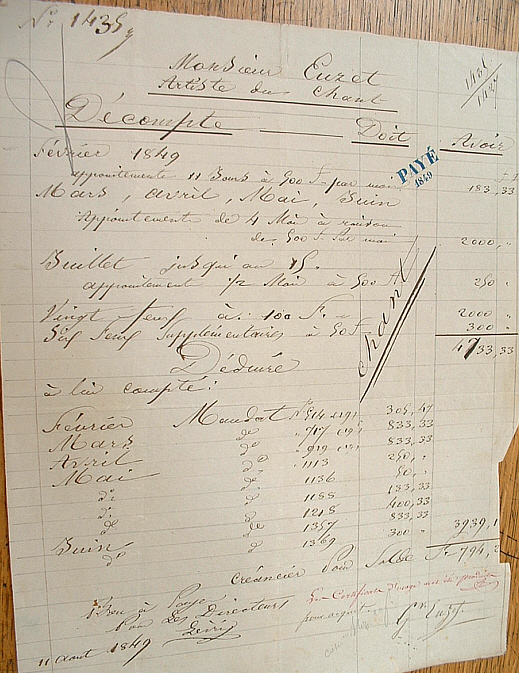 No. 1435
Monsieur Euzet
Artiste du Chant
Décompte Doit Avoir
Février 1849
PAYÉ
1849
appointements 11 Jours à 500 F par mois 183,33
Mars, avril, Mai, Juin
appointements de 4 Moi à raison
de 500 F. Par moi 2000
Juillet jusqu'au 15.
appointement 1/2 Moi à 500 F. 250
Vingt feux à 100 F. 2000
Six feux Supplémentaires à 50 F 300
4733,33
chant
Déduire
à lui compté:
Février Mandat 305,47
Mars do 717 833,33
Avril do 919 833,33
Mai do 1113 250
do do 1136 50
do do 1188 133,33
do do 1218 400,33
do do 1357 833,33
Juin do 1369 300 3939,1
Créancier Pour Solde F. 794,2
Bon à Payer
Par Les Directeurs
11 aout 1849
pour acquit